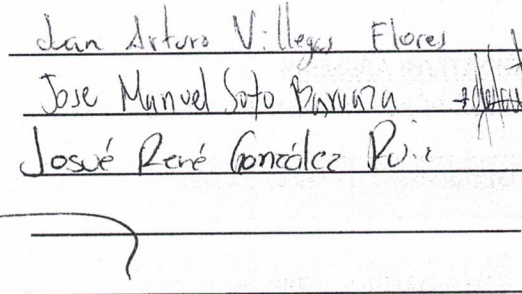 Juan Arturo Villegas Flores
Jose Manuel Soto
Josué René González